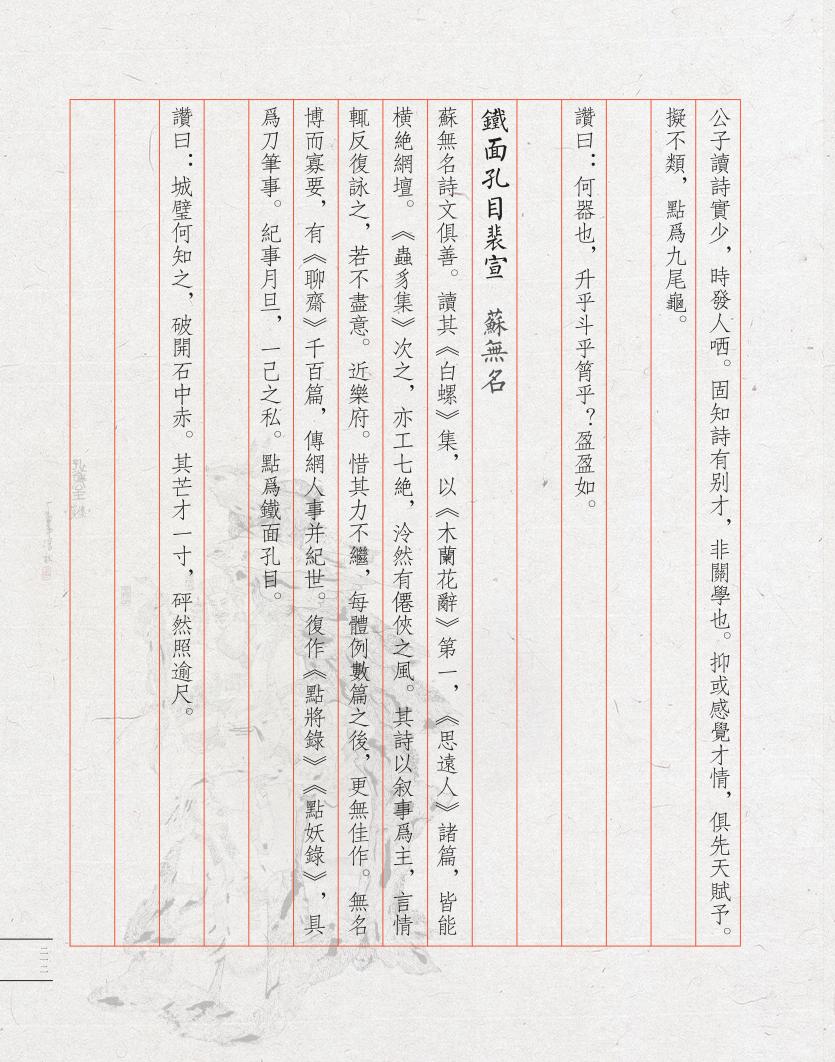 公子讀詩實少，時發人哂。固知詩有別才，非關學也。抑或感覺才情，俱先天賦予。
擬不類，點爲九尾龜。
讚曰：何器也，升乎斗乎筲乎？盈盈如。
鐵面孔目裴宣　蘇無名
蘇無名詩文俱善。讀其《白螺》集，以《木蘭花辭》第一，《思遠人》諸篇，皆能
橫絶網壇。《蟲豸集》次之，亦工七絶，泠然有僊俠之風。其詩以叙事爲主，言情
輒反復詠之，若不盡意。近樂府。惜其力不繼，每體例數篇之後，更無佳作。無名
博而寡要，有《聊齋》千百篇，傳網人事并紀世。復作《點將錄》《點妖錄》，具
爲刀筆事。紀事月旦，一己之私。點爲鐵面孔目。
讚曰：城璧何知之，破開石中赤。其芒才一寸，砰然照逾尺。
二一二